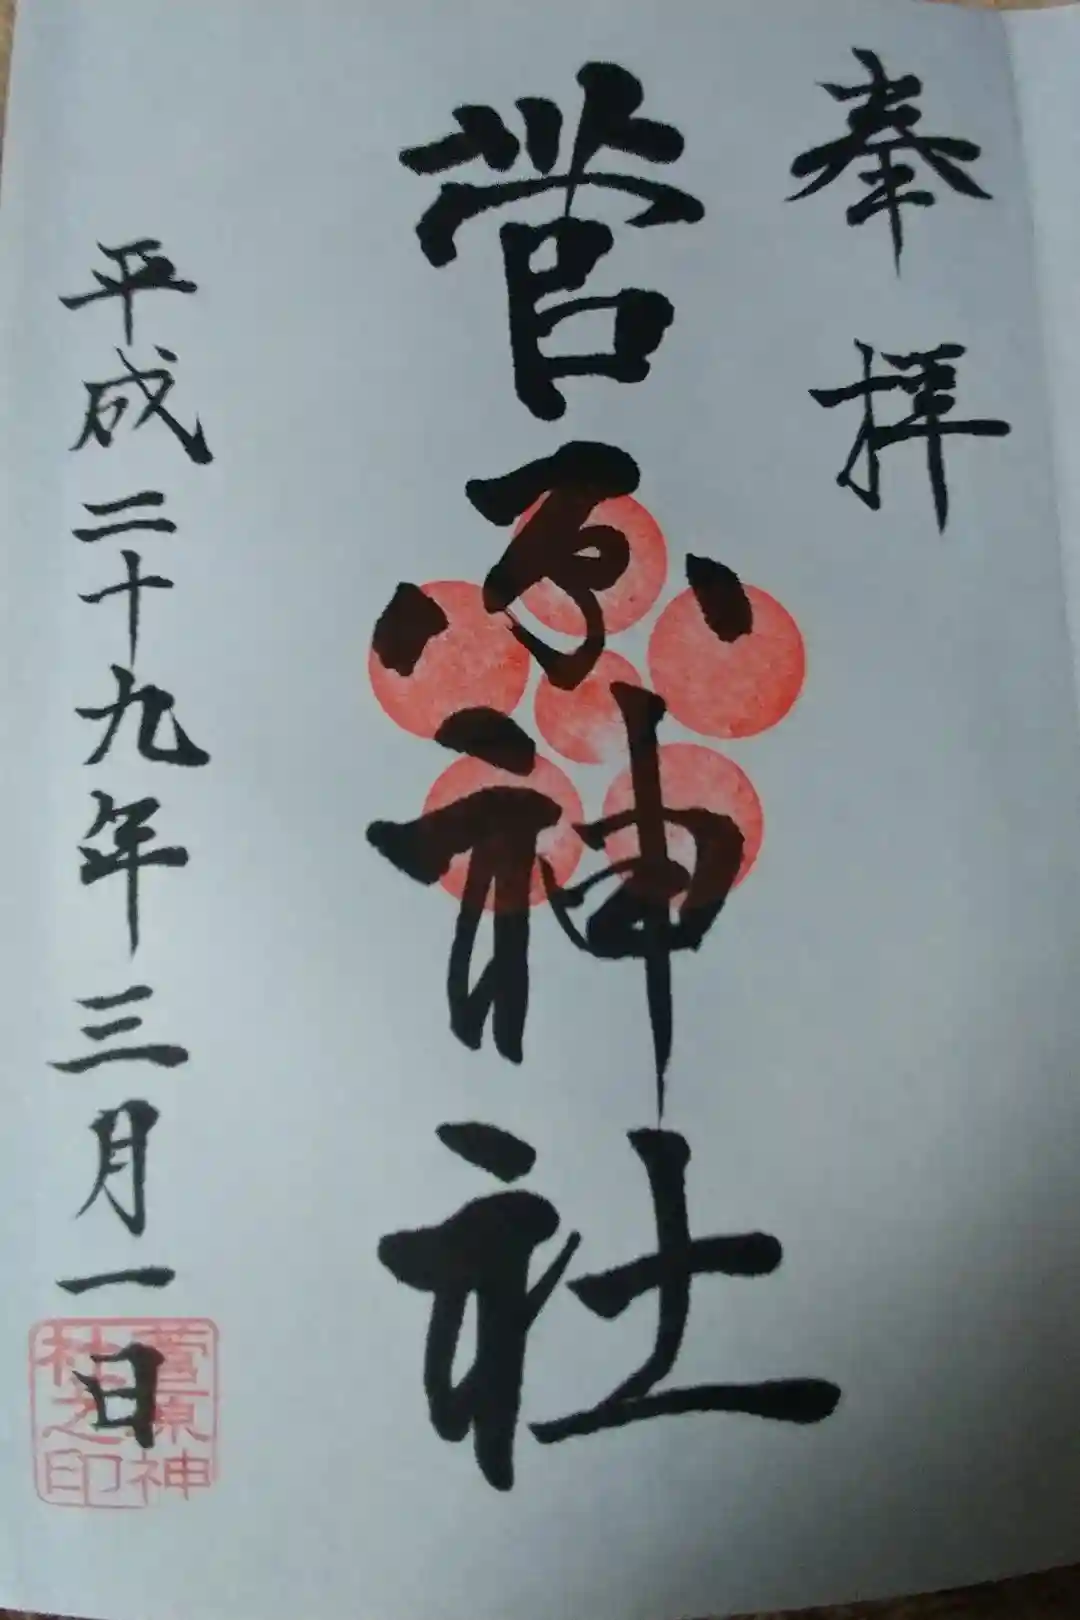 奉拝
菅原神社
平成二十九年三月一日
菅原神
社之印